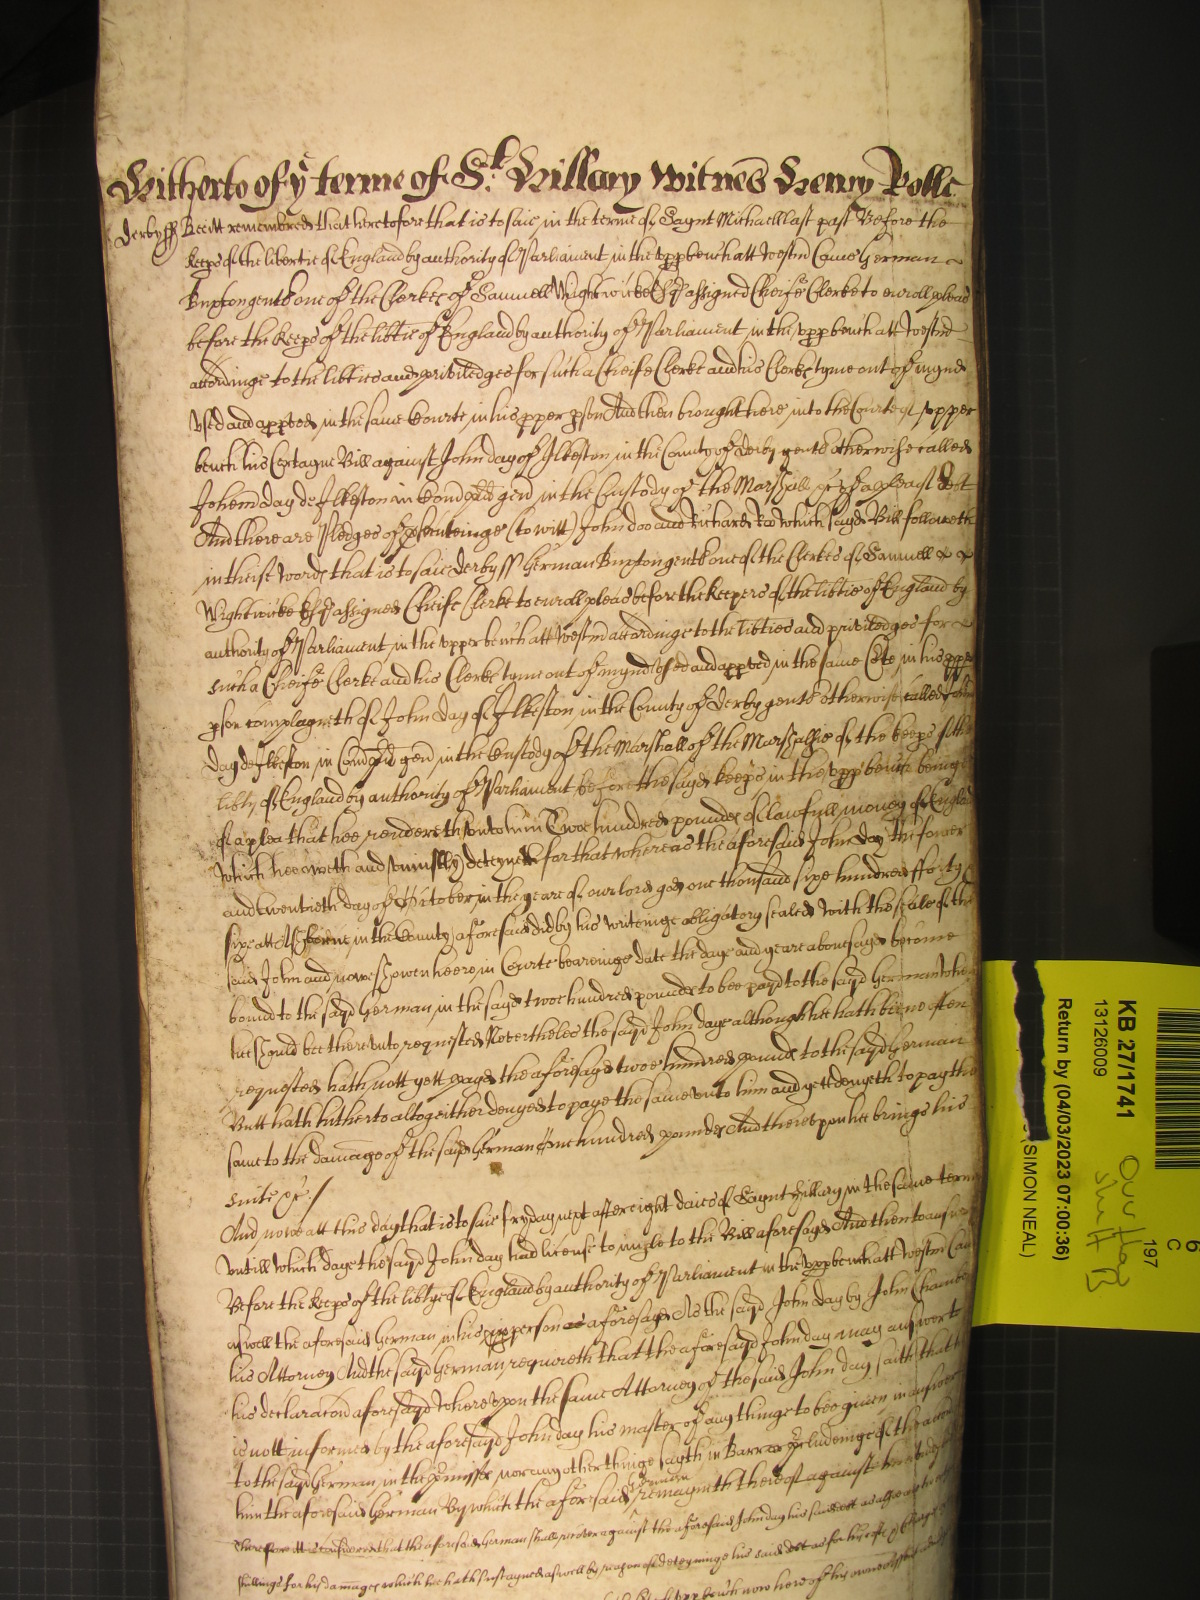 Hitherto of ye terme of St. Hillary Witnes Henry Rolle
Derby ss Bee itt remembred that heretofore that is to saie in the terme of Saynt Michaell last past Before the
keeps of the libertie of England by authority of Parliament in the upp bench att Westm Came German
Buxton gent one of the Clerkes of Samuell Wightwicke Esq assigned Cheife Clerke to enroll pleas
before the keeps of the libtie of England by authority of Parliament in the upp bench att Westm
accordinge to the libties and priviledges for such a Cheife Clerke and his Clerkes tyme out of mynde
Used and appved in the same Courte in his pper pson And then brought here into the Courte of upper
bench his Certayne Bill against John day of Ilkeston in the County of Derby gent otherwise called
Johem day de Ilkeston in Com gen in the Custody of the Marshall &c of a plea of debt
And there are Pledges of psecuteinge (to witt) John doo and Richard Roo which sayd Bill followeth
in theise words that is to saie derby ss German Buxton gent one of the Clerkes of Samuell
Wightwicke Esq assigned Cheife Clerke to enroll pleas before the keepers of the libtie of England by
authority of Parliament in the upper bench att Westm accordinge to the libties and priviledges for
such a Cheife Clerke and his Clerkes tyme out of mynd used and appved in the same Cte in his pper
pson complayneth of John day of Ilkeston in the County of Derby gent otherwise called John
day de Ilkeston in Com gen in the Custody of the Marshall of the Marshallsie of the keeps of the
libty of England by authority of Parliament before the sayd keeps in the upp bench beinge
of a plea that hee render unto him Twoe hundred pounds of lawfull money of England
which hee oweth and uniustly deteyneth for that whereas the aforesaid John day the fower
and twentieth day of October in the yeare of our lord god one thousand sixe hundred fforty
sixe att Ashborne in the County aforesaid did by his writeinge obligatory sealed with the seale of the
said John and nowe shewen heere in Courte beareinge date the daye and yeare above sayd become
bound to the sayd German in the sayd twoe hundred pounds to bee payd to the sayd German when
hee should bee thereunto requested Neverthelesse the sayd John daye although hee hath beene often
requested hath nott yett payed the aforesayd twoe hundred pounds to the sayd German
Butt hath hitherto altogeither denyed to paye the same unto him and yett denyeth to pay the
same to the damage of the sayd German One hundred pounds And thereupon hee brings his
suite &c /
And nowe att this day that is to saie fryday next after eight daies of Saynt Hillary in the same terme
untill which daye the sayd John day had license to imple to the Bill aforesayd And then to answer
Before the keeps of the libtye of England by authority of Parliament in the upp bench att Westm Came
aswell the aforesaid German in his pper person as aforesayd As the sayd John day by John
his Attorney And the sayd German requireth that the aforesayd John day may answere to
his declaracon aforesayd Whereupon the same Attorney of the said John day saith that hee
is nott informed by the aforesayd John day his master of any thinge to bee given in answer
to the sayd German in the pmisses nor any other thinge sayth in Barr or pcludeinge of the accon
him the aforesaid German By which the aforesaid German remayneth thereof against
Therefore itt is considered that the aforesaid German shall recover against the aforesaid John day his said debt as also
shillings for his damages which hee hath susteyned aswell by reason of deteyninge his said debt as for his costs & charges
upp bench now here of his owne assent
KB 27/1741
13126009
Return by (04/03/2023 07:00:36)
(SIMON NEAL)
197
C
6